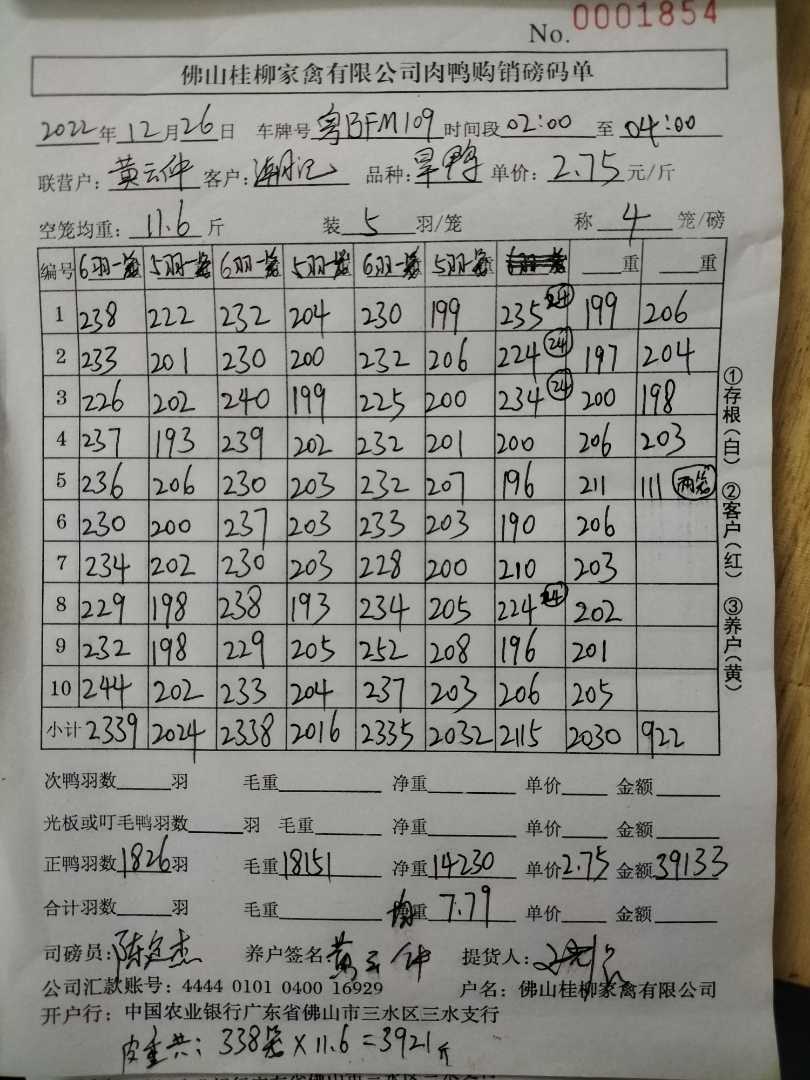 No. 0001854
佛山桂柳家禽有限公司肉鸭购销磅码单
2022年12月26日 车牌号粤BFM109时间段02:00至04:00
联营户:黄云仲客户:潮记 品种:旱鸭单价:2.75元/斤
空笼均重:11.6斤 装5羽/笼 称4笼/磅
编号 6羽一笼 5羽一笼 6羽一笼 5羽一笼 6羽一笼 5羽一笼重 重 重
1 238 222 232 204 230 199 235 24 199 206
2 233 201 230 200 232 206 224 24 197 204
3 226 202 240 199 225 200 234 24 200 198
4 237 193 239 202 232 201 200 206 203
5 236 206 230 203 232 207 196 211 111 两笼
6 230 200 237 203 233 203 190 206
7 234 202 230 203 228 200 210 203
8 229 198 238 193 234 205 224 24 202
9 232 198 229 205 252 208 196 201
10 244 202 233 204 237 203 206 205
小计 2339 2024 2338 2016 2335 2032 2115 2030 922
①存根(白) ②客户(红) ③养户(黄)
次鸭羽数 羽 毛重 净重 单价 金额
光板或叮毛鸭羽数 羽 毛重 净重 单价 金额
正鸭羽数1826羽 毛重18151 净重14230 单价2.75 金额39133
合计羽数 羽 毛重 均重7.79 单价 金额
司磅员:陈定杰 养户签名黄云仲 提货人:
公司汇款账号:4444 0101 0400 16929 户名:佛山桂柳家禽有限公司
开户行:中国农业银行广东省佛山市三水区三水支行
皮重共:338笼×11.6=3921斤